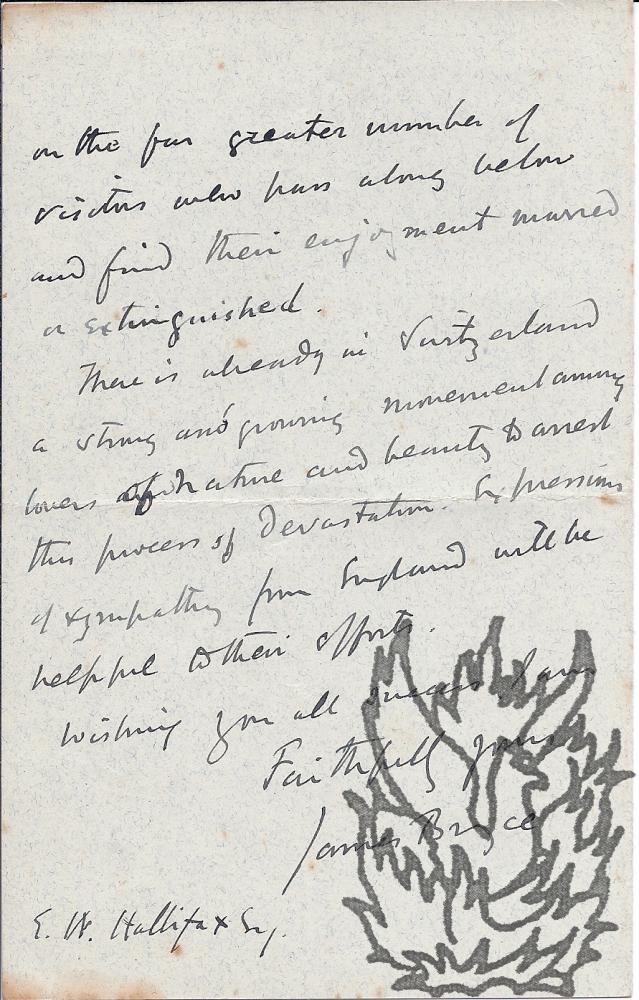 on the far greater number of
visitors who pass along below
and find their enjoyment marred
or extinguished.
There is already in Switzerland
a strong and growing movement among
lovers of nature and beauty to arrest
this process of Devastation. Expressions
of sympathy from England will be
helpful to their efforts.
Wishing you all success I am
Faithfully yours
James Bryce
E. W. Hallifax Esq.